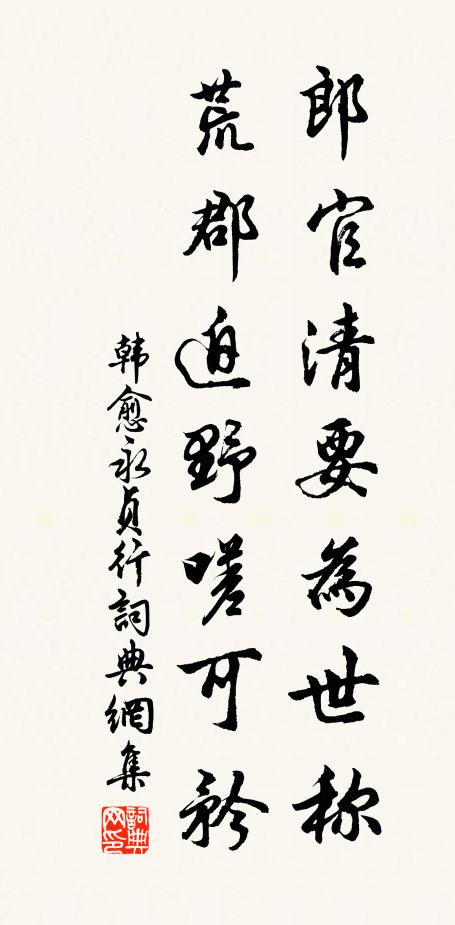 郎官清要為世称
荒郡迫野嗟可矜
韩愈永貞行詞典網集
詞典网印